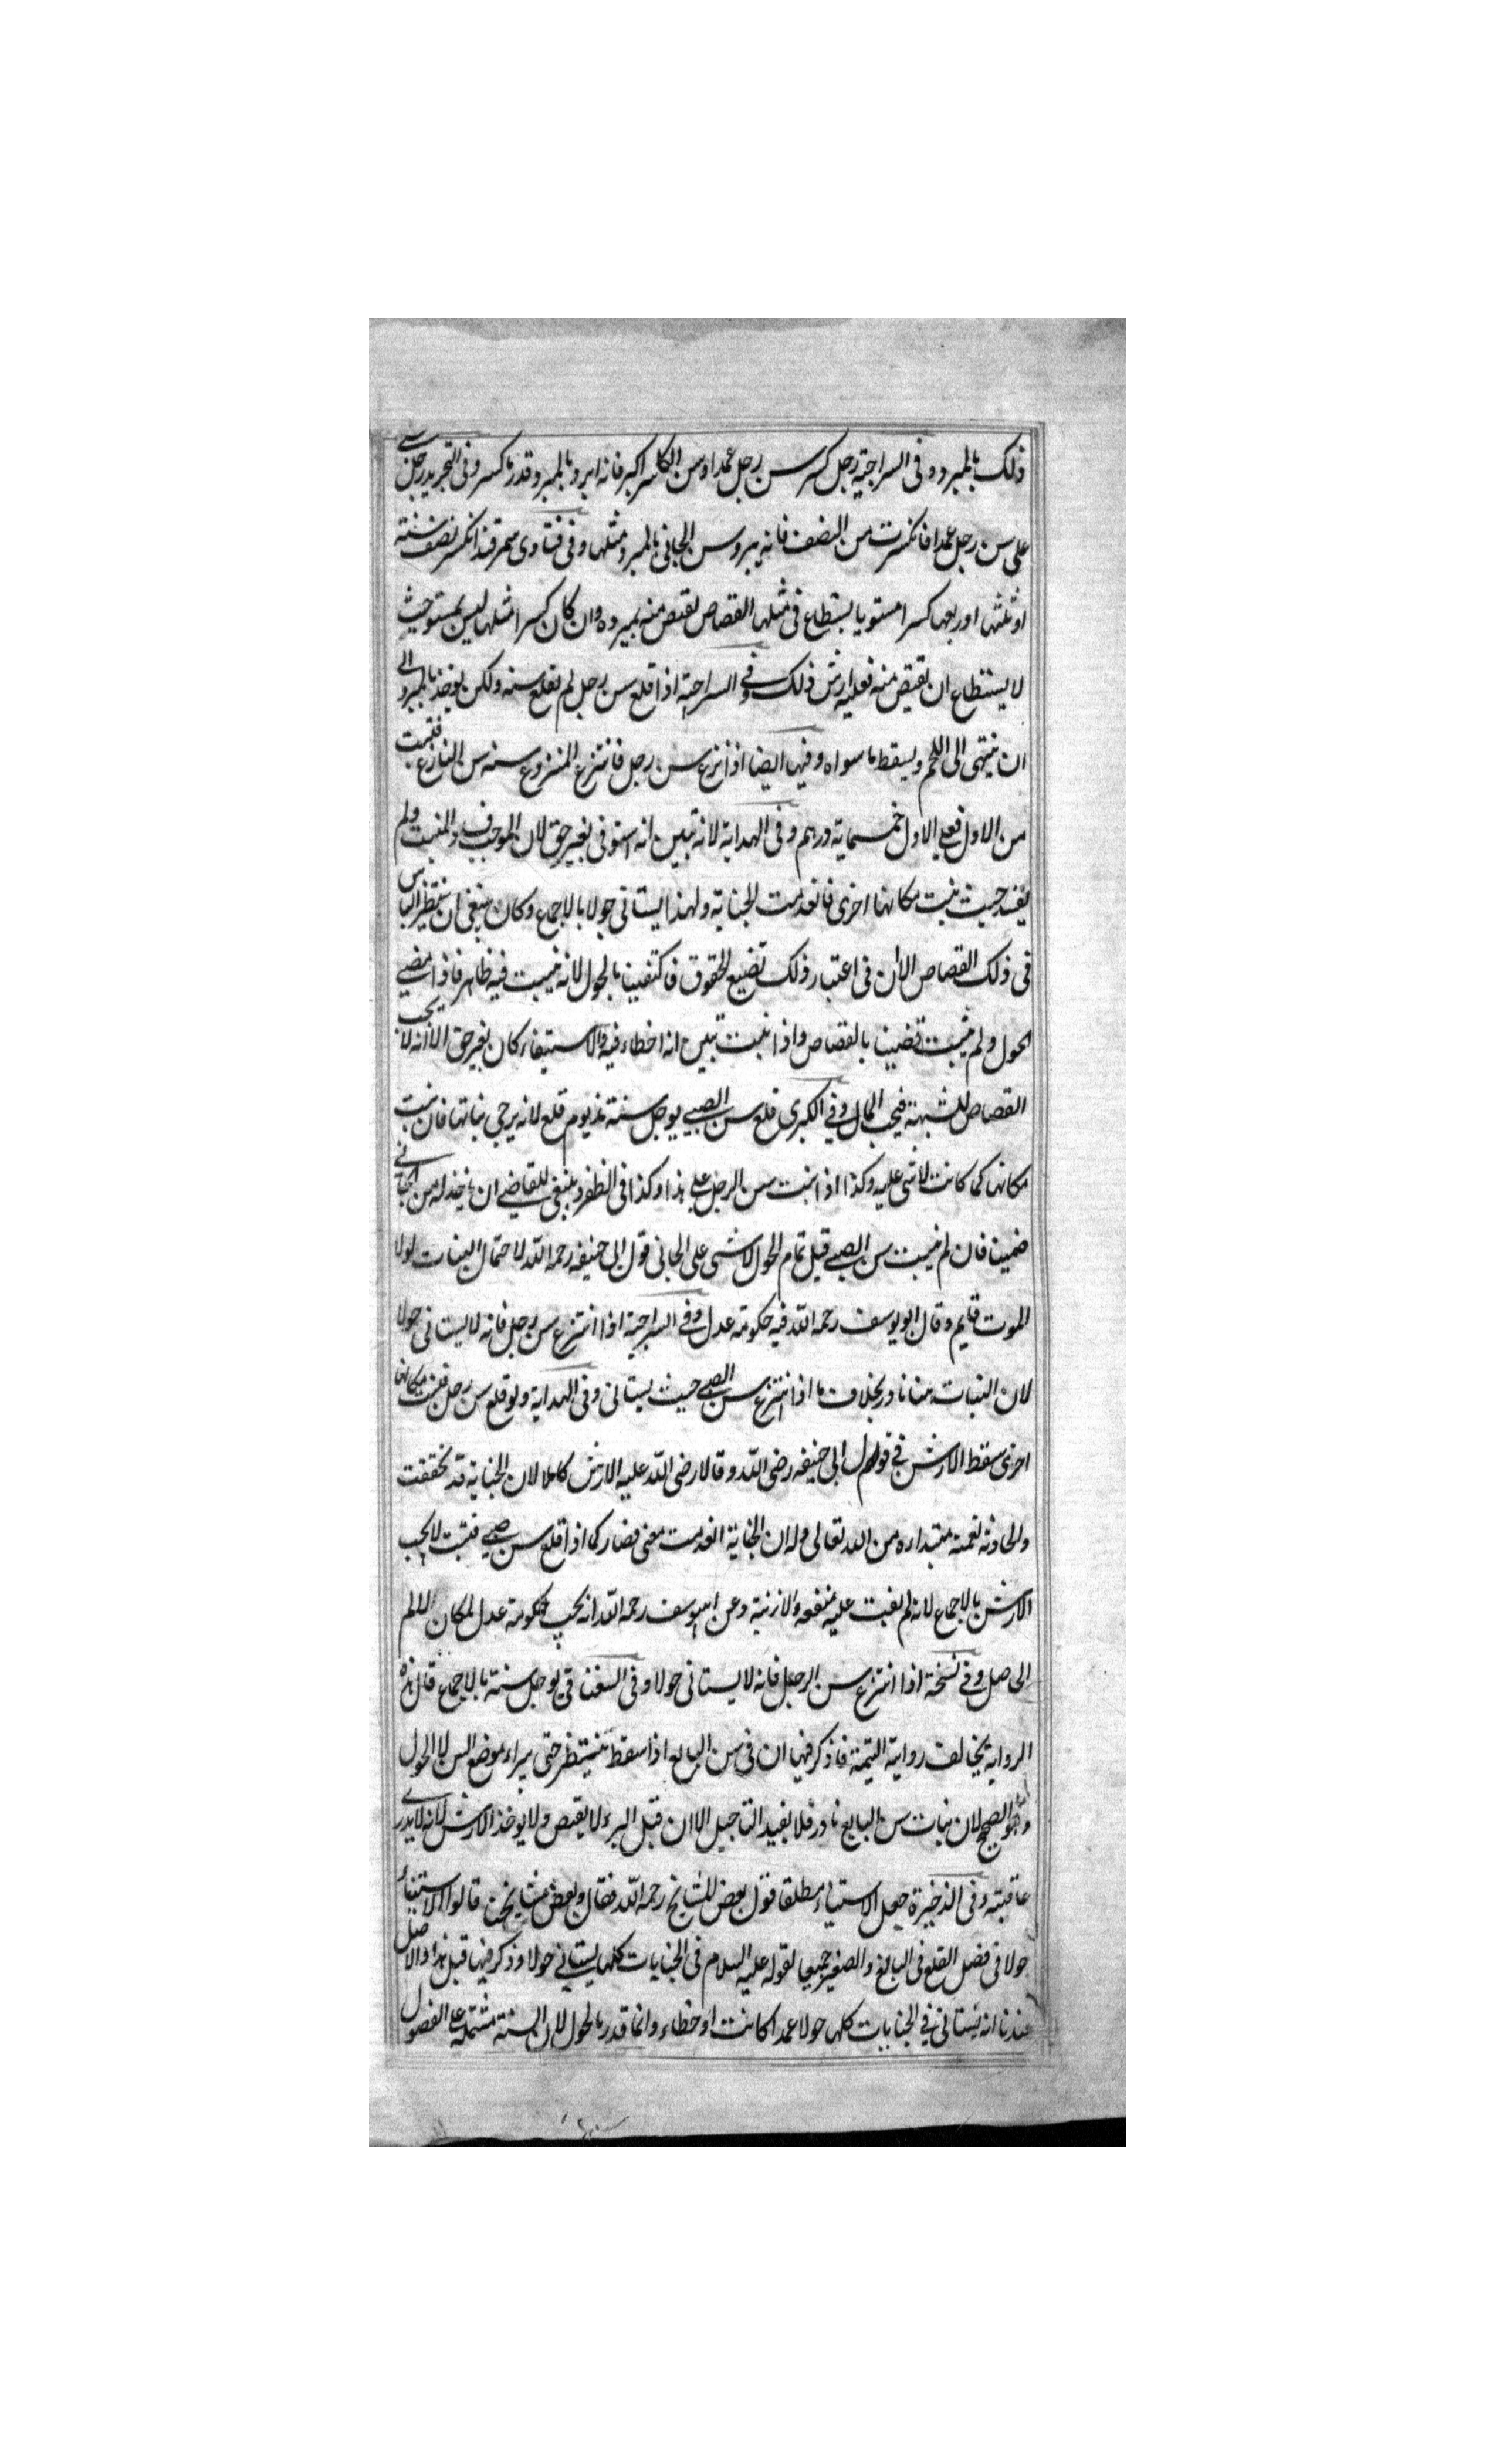 ذلك بالمبرد وفى السراجية رجل كسر سن رجل عمدا وسن الكاسر اكبر فانه ابرد بالمبرد قدر ما كسر وفى التجريد رجل
على سن رجل عمدا فانكسرت من النصف فانه يبرد سن الجانى بالمبرد مثلها وفى فتاوى سمرقند انكسر نصف سنة
او ثلثها او ربعها كسرا مستويا يستطاع فى مثلها القصاص يقتص منه بمبرده وان كان كسرا مثلها ليس بمستو حيث
لا يستطاع ان يقتص منه فعليه ارش ذلك وفى السراجية اذا قلع سن رجل لم تقلع سنه ولكن يوخذ بالمبرد الى
ان ينتهى الى اللحم ويسقط ما سواه وفيها ايضا اذا نزع سن رجل فانتزع المنزوع سنه سن النازع فنبت
من الاول فعلى الاول خمسماية درهم وفى الهداية لانه تبين انه استوفى بغير حق لان الموجب المنبت ولم
يفسد حيث نبت مكانها اخرى فانعدمت الجناية ولهذا يستانى حولا بالاجماع وكان ينبغى ان ينتظر الياس
فى ذلك القصاص الا ان فى اعتبار ذلك تضييع الحقوق فاكتفينا بالحول لانه ينبت فيه ظاهر فاذا مضى
الحول ولم ينبت قضينا بالقصاص واذا نبت تبين انه اخطاء فيه والاستيفاء كان بغير حق الا انه لا يجب
القصاص للشبهة فيجب المال وفى الكبرى قلع سن الصبى يوجل سنة مذ يوم قلع لانه يرجى نباتها فان نبت
مكانها كما كانت لا شى عليه وكذا اذا نبت سن الرجل على هذا وكذا فى الظفر وينبغى للقاضى ان ياخذ له من الجانى
ضمينا فان لم ينبت سن الصبى قبل تمام الحول لا شى على الجانى قول ابى حنيفه رحمه الله لاحتمال النبات لولا
الموت قايم وقال ابو يوسف رحمه الله فيه حكومة عدل وفى السراجية اذا انتزع سن رجل فانه لا يستانى حولا
لان النبات منا نادر بخلاف ما اذا انتزع سن الصبى حيث يستانى وفى الهداية ولو قلع سن رجل فنبت مكانها
اخرى سقط الارش فى قول ابى حنيفه رضى الله وقالا رضى الله عليه الارش كاملا لان الجناية قد تحققت
والحادثه نعمة مبتداره من الله تعالى وله ان الجناية انعدمت معنى فصار كما اذا قلع سن صبى فنبت لا يجب
الارش بالاجماع لانه لم يفت عليه منفعه ولا زينة وعن ابى يوسف رحمه الله انه يجب حكومة عدل لمكان الالم
الحاصل وفى نسخة اذا انتزع سن الرجل فانه لا يستانى حولا وفى السغناقى يوجل سنة بالاجماع قال هذه
الرواية يخالف رواية التتمة فاذكر فيها ان فى سن البالغ اذا سقط ينتظر حتى يبراء موضع السن لا الحول
وهو الصحيح لان نبات سن البالغ نادر فلا يفيد التاجيل الا ان قبل البرء لا يقتص ولا يوخذ الارش لانه لا يدرى
عاقبته وفى الذخيرة جعل الاستيناء مطلقا قول بعض المشايخ رحمه الله فقال وبعض مشايخنا قالوا الاستيناء
حولا فى فصل القلع فى البالغ والصغير جميعا لقوله عليه السلام فى الجنايات كلها يستانى حولا وذكر فيها قبل هذا والاصل
عندنا انه يستانى فى الجنايات كلها حولا عمدا كانت او خطاء وانما قدر بالحول لان السنة مشتملة على الفصول